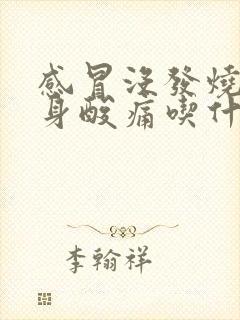 感冒沒發燒
身酸痛喫什
李翰祥